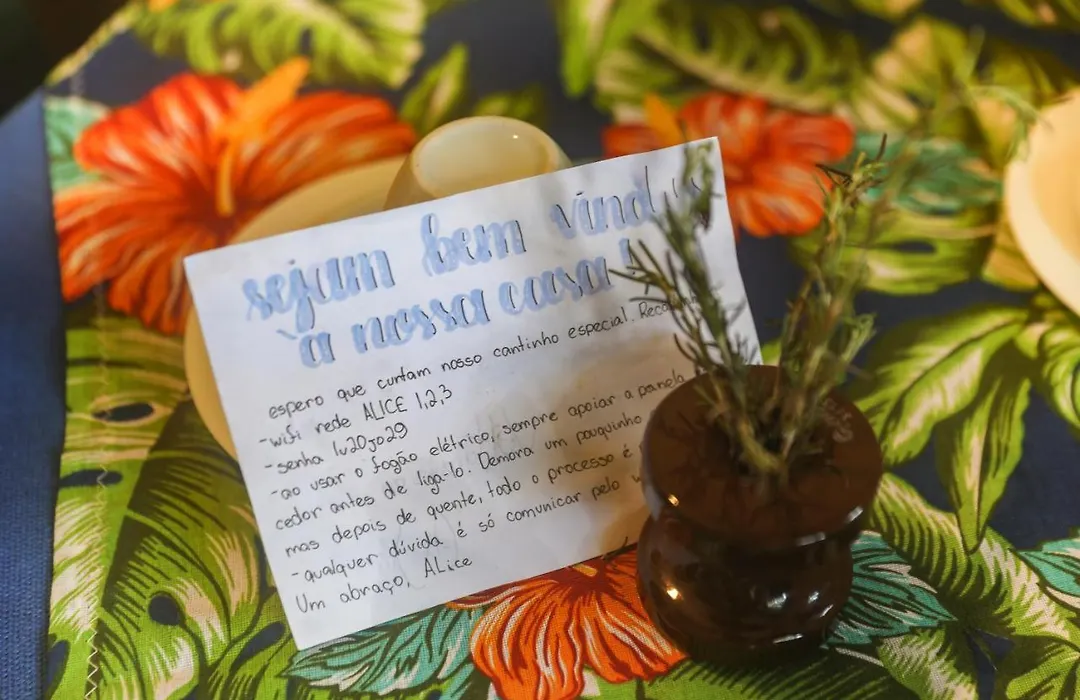 sejam bem vind
à nossa casa!
espero que curtam nosso cantinho especial.
-wifi rede ALICE 1,2,3
-senha lu20jo29
-ao usar o fogão elétrico, sempre apoiar a panela
cedor antes de liga-lo. Demora um pouquinho
mas depois de quente, todo o processo é
-qualquer dúvida é só comunicar pelo w
Um abraço, ALice